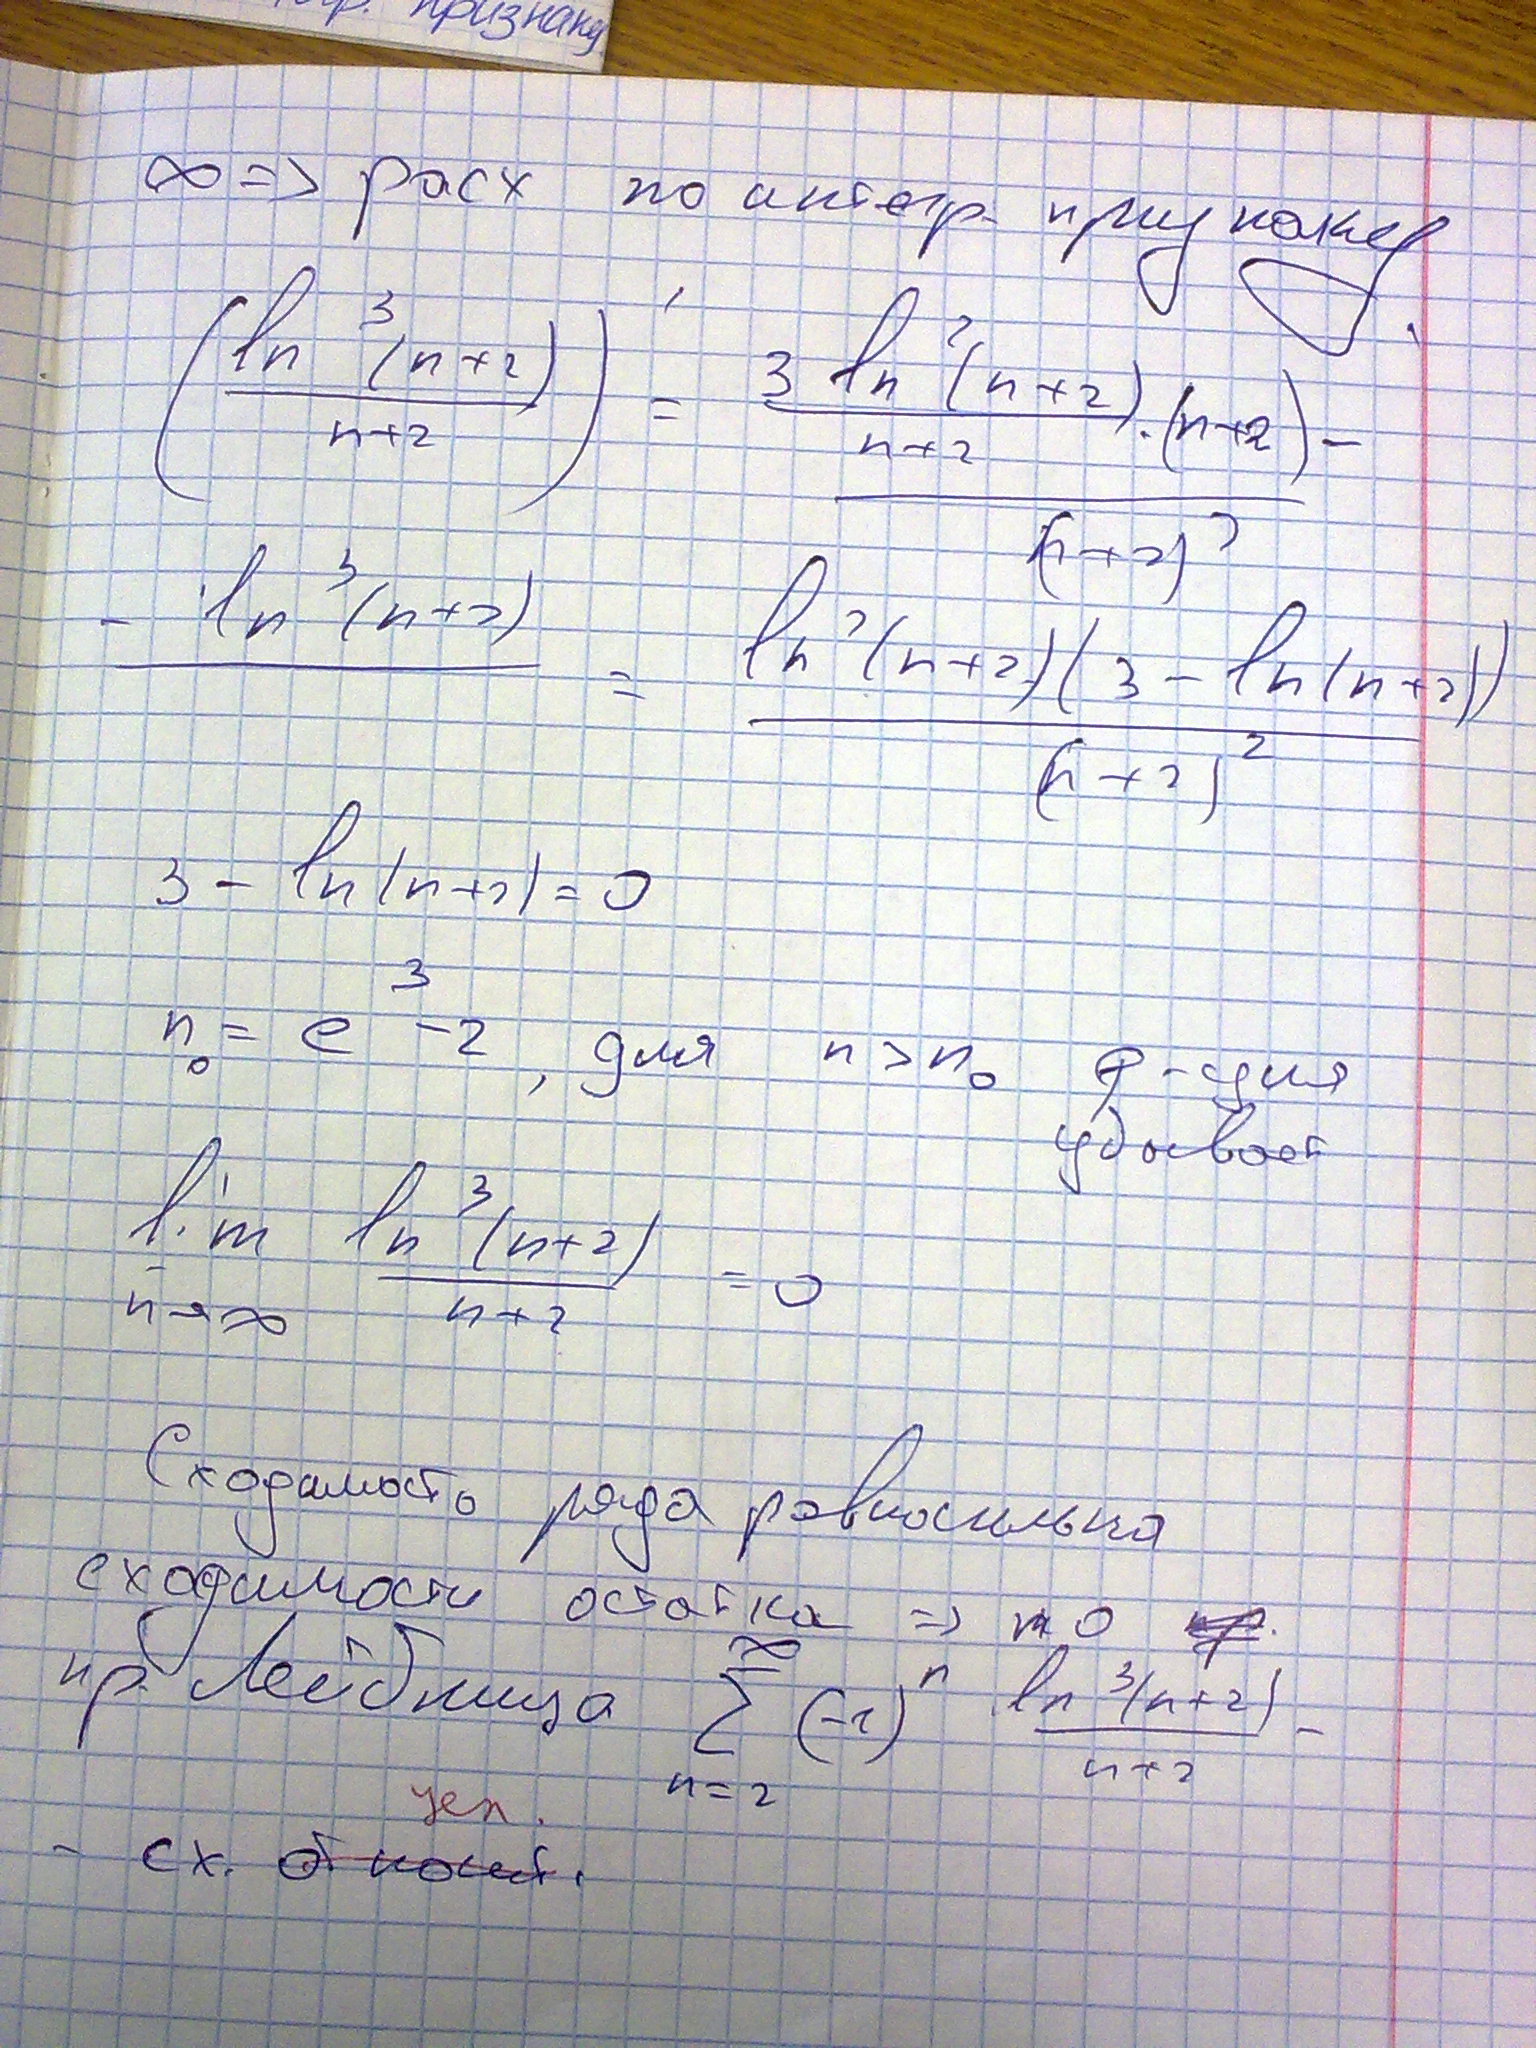 гр. признаку
∞ => расх по интегр. признаку.
(ln³(n+2) / (n+2))' = (3 ln²(n+2) / (n+2) · (n+2) -
/ (n+2)²
- ln³(n+2) / = ln²(n+2)(3 - ln(n+2)) / (n+2)²
3 - ln(n+2) = 0
n₀ = e³ - 2, для n > n₀ ф-ция
убывает
lim n→∞ ln³(n+2) / (n+2) = 0
Сходимость ряда равносильна
сходимости остатка => по
пр. Лейбница ∑ n=2 ∞ (-1)ⁿ ln³(n+2) / (n+2) -
усл.
- сх. относит.